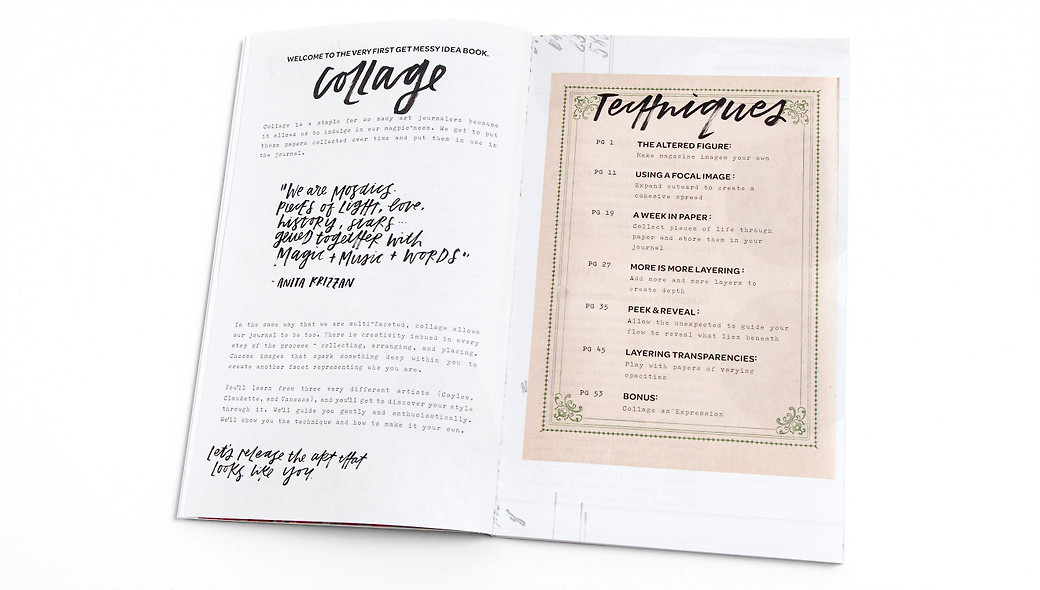 WELCOME TO THE VERY FIRST GET MESSY IDEA BOOK.
Collage
Collage is a staple for so many art journalers because
it allows us to indulge in our magpie-ness. We get to put
these papers collected over time and put them in use in
the journal.
"We are Mosaics.
Pieces of Light, Love,
history, stars...
glued together with
Magic + Music + WORDS"
- ANITA KRIZZAN
In the same way that we are multi-faceted, collage allows
our journal to be too. There is creativity imbued in every
step of the process - collecting, arranging, and placing.
Choose images that spark something deep within you to
create another facet representing who you are.
You'll learn from three very different artists (Caylee,
Claudette, and Vanessa), and you'll get to discover your style
through it. We'll guide you gently and enthusiastically.
We'll show you the technique and how to make it your own.
Let's release the art that
looks like you.
Techniques
PG 1 THE ALTERED FIGURE:
Make magazine images your own
PG 11 USING A FOCAL IMAGE:
Expand outward to create a
cohesive spread
PG 19 A WEEK IN PAPER:
Collect pieces of life through
paper and store them in your
journal
PG 27 MORE IS MORE LAYERING:
Add more and more layers to
create depth
PG 35 PEEK & REVEAL:
Allow the unexpected to guide your
flow to reveal what lies beneath
PG 45 LAYERING TRANSPARENCIES:
Play with papers of varying
opacities
PG 53 BONUS:
Collage as Expression